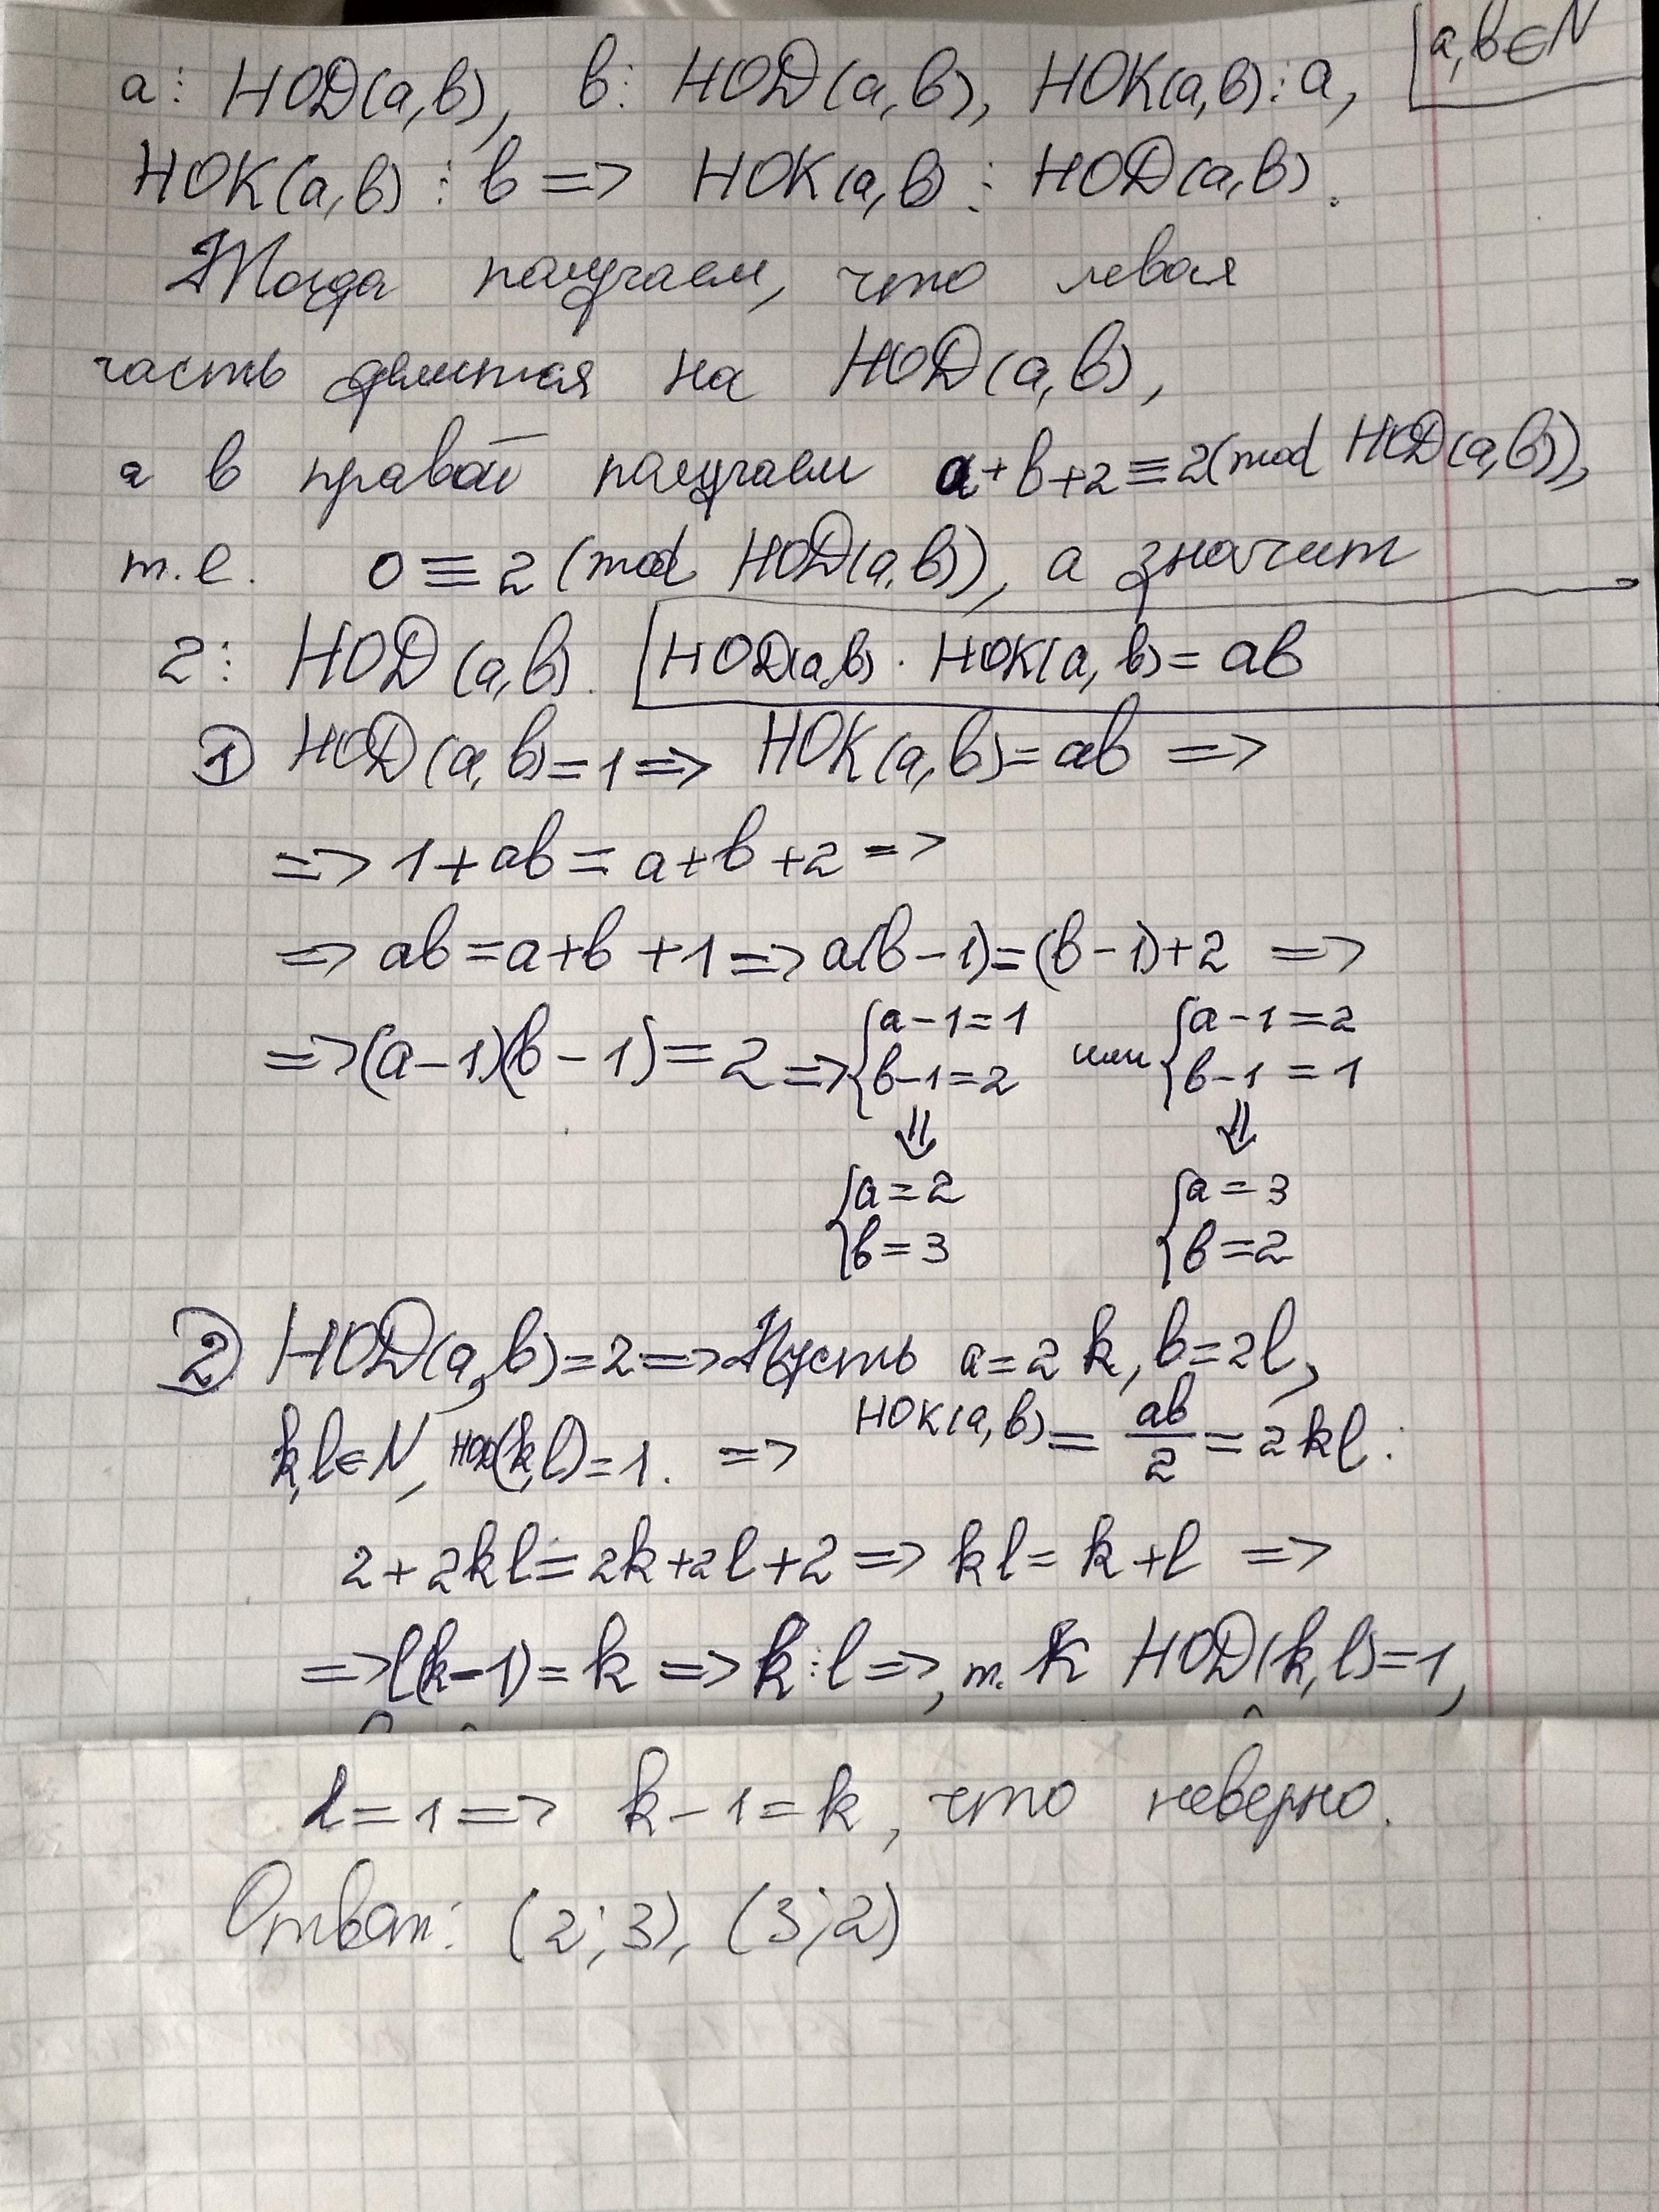 a⋮ НОД(a,b), b⋮ НОД(a,b), НОК(a,b)⋮a, a,b∈N
НОК(a,b)⋮b => НОК(a,b)⋮НОД(a,b).
Тогда получаем, что левая
часть делится на НОД(a,b),
а в правой получаем a+b+2≡2(mod НОД(a,b)),
т.е. 0≡2(mod НОД(a,b)), а значит
2⋮ НОД(a,b). НОД(a,b)·НОК(a,b)=ab
① НОД(a,b)=1=> НОК(a,b)=ab =>
=> 1+ab=a+b+2 =>
=> ab=a+b+1=>a(b-1)=(b-1)+2 =>
=>(a-1)(b-1)=2=> {a-1=1 b-1=2 или {a-1=2 b-1=1
⇓ ⇓
{a=2 {a=3
b=3 b=2
② НОД(a,b)=2=>Пусть a=2k, b=2l,
k,l∈N, НОД(k,l)=1. => НОК(a,b)=ab/2=2kl:
2+2kl=2k+2l+2=>kl=k+l =>
=>l(k-1)=k=>k⋮l=>, т.к НОД(k,l)=1,
l=1=> k-1=k, что неверно.
Ответ: (2;3), (3;2)